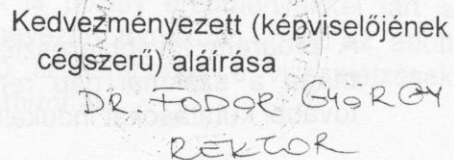 Kedvezményezett (képviselőjének
cégszerű) aláírása
DR. FODOR GYÖRGY
REKTOR